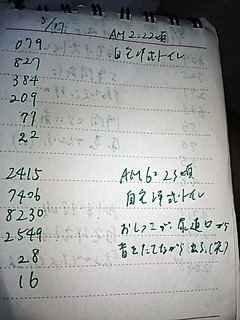 5/27 AM2:22頃
079 自宅洋式トイレ
827
384
209
79
22
2415 AM6:23頃
7406 自宅洋式トイレ
8230 おしっこが尿道口から
2549 音をたてながら出る(笑)
28
16